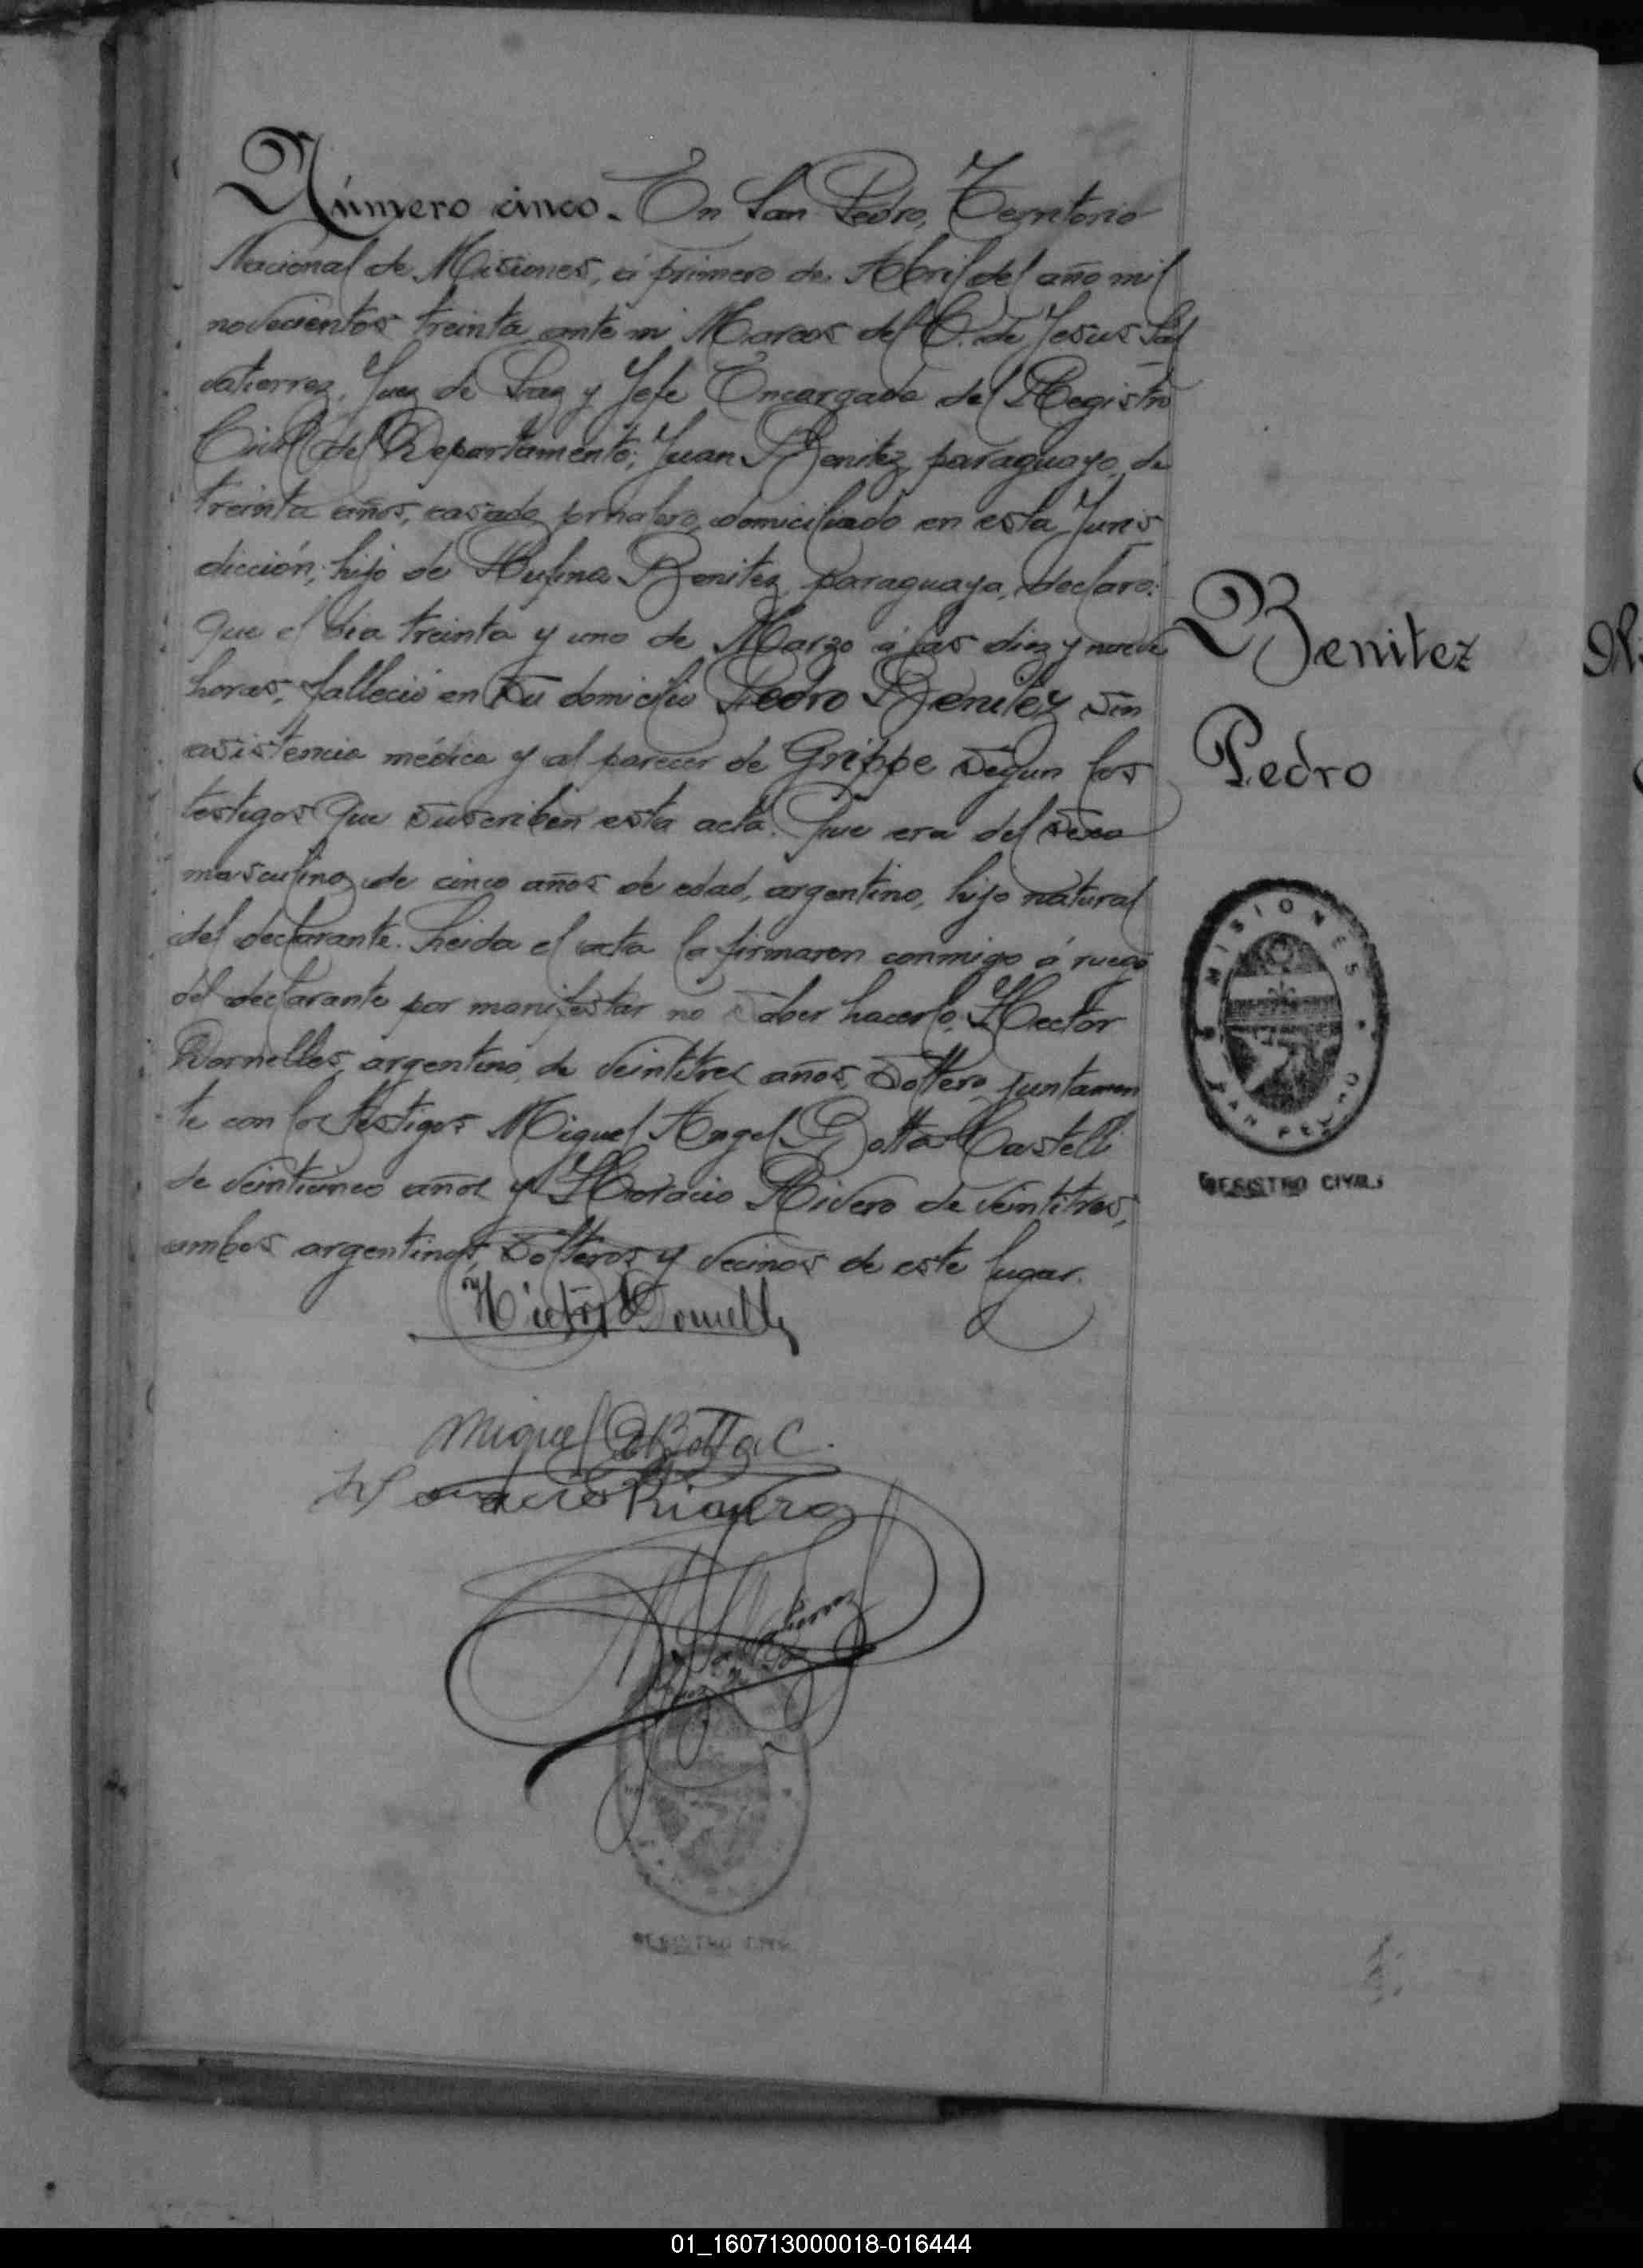 Número cinco. En San Pedro, Territorio
Nacional de Misiones, á primero de Abril del año mil
novecientos treinta ante mi Marcos del C. de Jesus Sal
vatierrez, Juez de Paz y Jefe Encargado del Registro
Civil del Departamento; Juan Benitez, paraguayo, de
treinta años, casado, jornalero, domiciliado en esta Juris
dicción; hijo de Rufina Benitez, paraguaya, declaró:
Que el dia treinta y uno de Marzo á las diez y nueve
horas, falleció en su domicilio Pedro Benitez sin
asistencia médica y al parecer de Grippe según los
testigos que suscriben esta acta. Que era del sexo
masculino, de cinco años de edad, argentino, hijo natural
del declarante. Leida el acta la firmaron conmigo á ruego
del declarante por manifestar no saber hacerlo, Hector
Dornelles, argentino, de veintitres años, soltero, juntamen
te con los testigos Miguel Angel Botta Castelli
de veinticinco años y Horacio Rivero de veintitres,
ambos argentinos, solteros y vecinos de este lugar.
Hector Dornelles
Miguel A Botta C.
Horacio Rivero
Juez de Paz
Benitez
Pedro
MISIONES
SAN PEDRO
REGISTRO CIVIL
REGISTRO CIVIL
01_160713000018-016444